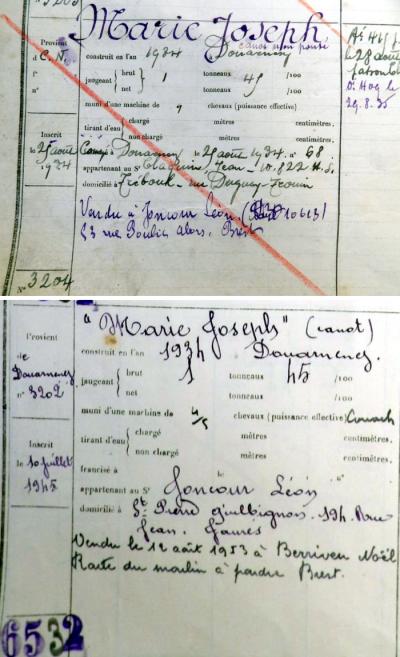 Marie Joseph
canot non ponté
Provient
d C. N.
f°
n°
construit en l'an 1934 Douarnenez
jaugeant { brut 1 tonneaux 45 /100
net tonneaux /100
muni d'une machine de 9 chevaux (puissance effective)
tirant d'eau { chargé mètres centimètres.
non chargé mètres centimètres.
Inscrit
le 25 août
1934
Douarnenez le 25 août 1934 n° 68
appartenant au Sr Jean 10.822
domicilié à Tréboul rue Duguay-Trouin
Vendu à Joncour Léon (10613)
23 rue Poulic alors, Brest
N° 3204
le 28 août
29.8.35
"Marie Joseph" (canot)
Provient
de
Douarnenez
n° 3202
construit en l'an 1934 Douarnenez.
jaugeant { brut 1 tonneaux 45 /100
net tonneaux /100
muni d'une machine de 4/5 chevaux (puissance effective)
tirant d'eau { chargé mètres centimètres.
non chargé mètres centimètres.
Inscrit
le 10 juillet
1945
francisé à le n°
appartenant au Sr Joncour Léon
domicilié à St Pierre Quilbignon. 194 Rue
Jean Jaurès
Vendu le 12 août 1953 à Berriven Noël
Route du moulin à poudre Brest.
6532